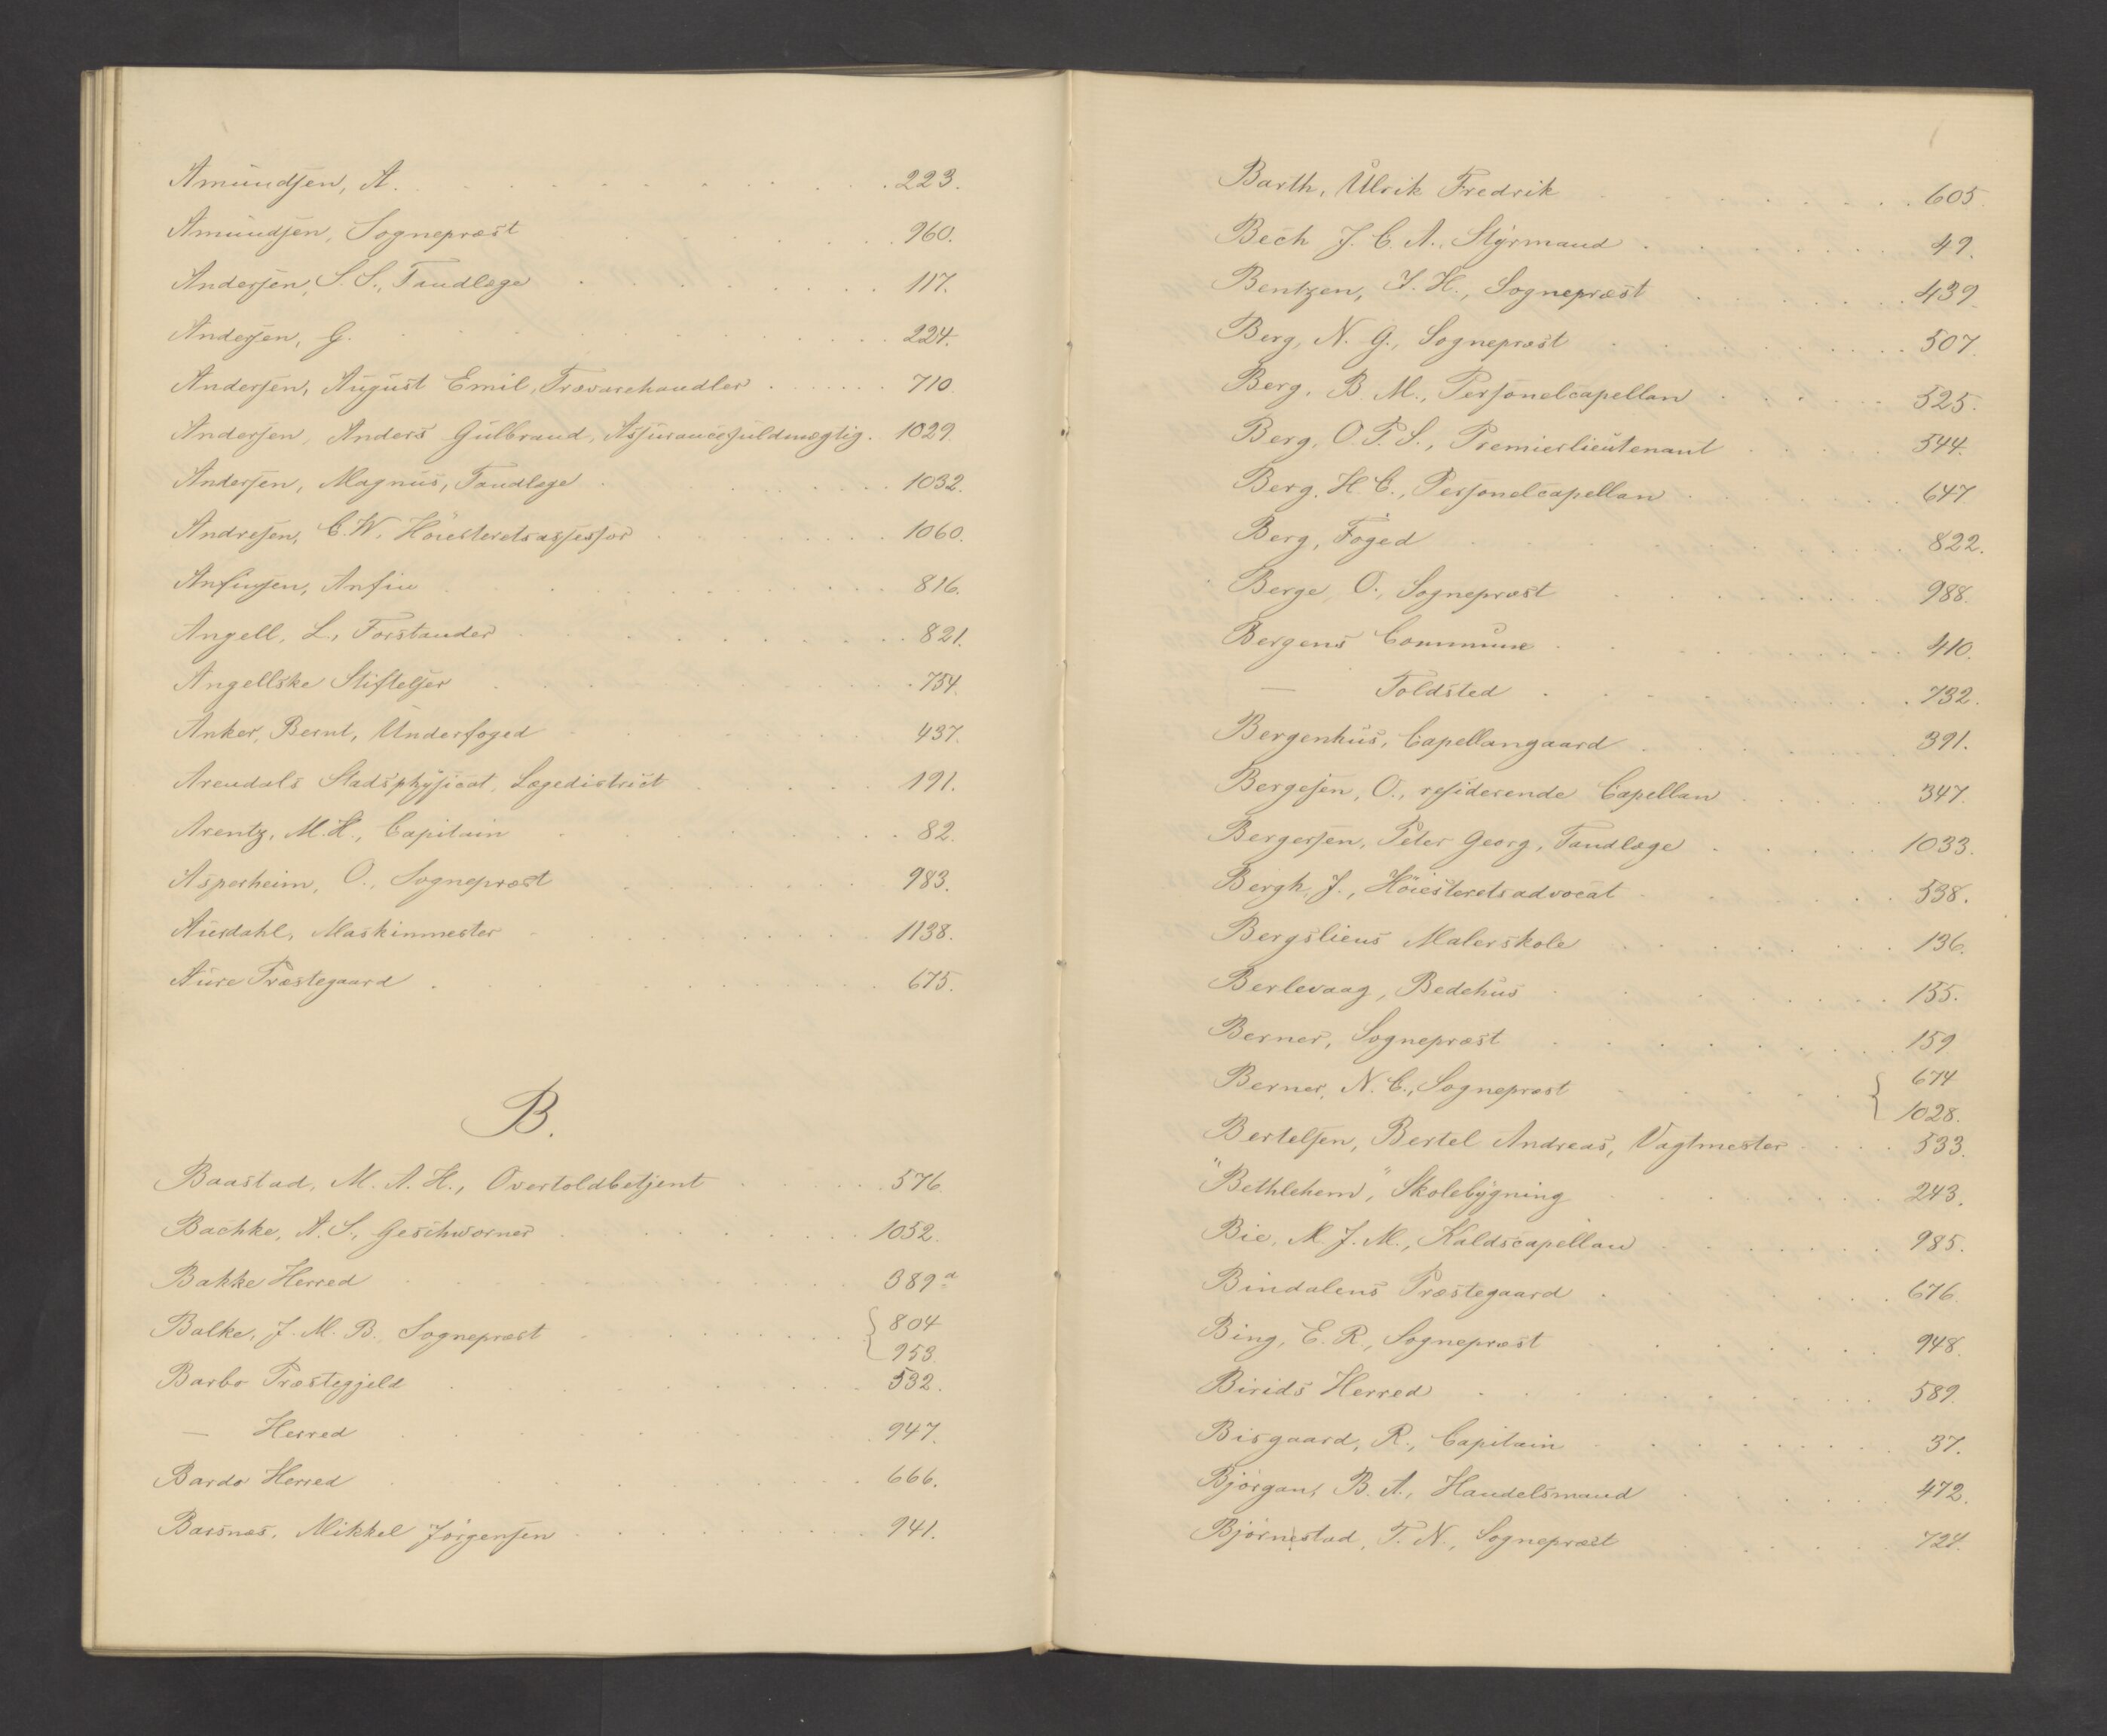 Amundsen, A. 223.
Amundsen, Sognepræst 960.
Andersen, S. S., Tandlæge 117.
Andersen, G. 224.
Andersen, August Emil, Trævarehandler 710.
Andersen, Anders Gulbrand, Assurancefuldmægtig. 1029.
Andersen, Magnus, Tandlæge 1032.
Andresen, C. W. Höiesteretsassessor 1060.
Anfinsen, Anfin 816.
Angell, L., Forstander 821.
Angellske Stiftelser 754.
Anker, Bernt, Underfoged 437.
Arendals Stadsphysicat, Lægedistrict 191.
Arentz, M. H., Capitain 82.
Asperheim, O., Sognepræst 983.
Aurdahl, Maskinmester 1138.
Aure Præstegaard 675.
B.
Baastad, M. A. H., Overtoldbetjent 576.
Bachke, A. S., Geschworner 1052.
Bakke Herred 389 a
Balke, J. M. B. Sognepræst 804
953.
Barbo Præstegjeld 532.
— Herred 947.
Bardo Herred 666.
Barsnæs, Mikkel Jörgensen 941.
Barth, Ulrik Fredrik 605.
Bech J. C. A., Styrmand 49.
Bentzen, J. H., Sognepræst 439.
Berg, N. G., Sognepræst 507.
Berg, B. M., Personelcapellan 525.
Berg, O. T. S., Premierlieutenant 544.
Berg, H. C., Personelcapellan 647
Berg, Foged 822.
Berge, O., Sognepræst 988.
Bergens Commune 410.
— Toldsted 732.
Bergenhus, Capellangaard 391.
Bergesen, O., residerende Capellan 347.
Bergersen, Peter Georg, Tandlæge 1033.
Bergh, J., Höiesteretsadvocat 538.
Bergsliens Malerskole 136.
Berlevaag, Bedehus 155.
Berner, Sognepræst 159
Berner, N. C., Sognepræst 674
1028.
Bertelsen, Bertel Andreas, Vagtmester 533.
"Bethlehem", Skolebygning 243.
Bie, M. J. M., Kaldscapellan 985.
Bindalens Præstegaard 676.
Bing, E. R., Sognepræst 948.
Birids Herred 589.
Bisgaard, R., Capitain 37.
Björgan, B. A., Handelsmand 472.
Björnestad, T. N., Sognepræst 724.